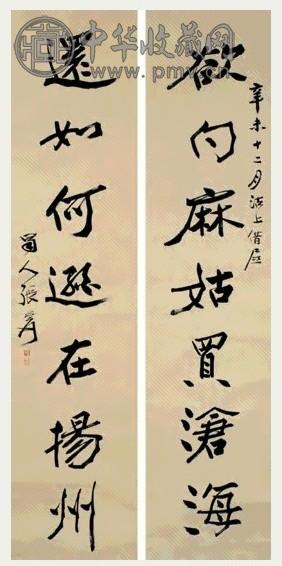 中华收藏网
www.pmv.cn
欲向麻姑買滄海
辛未十二月滬上借居
還如何遜在揚州
蜀人張爰